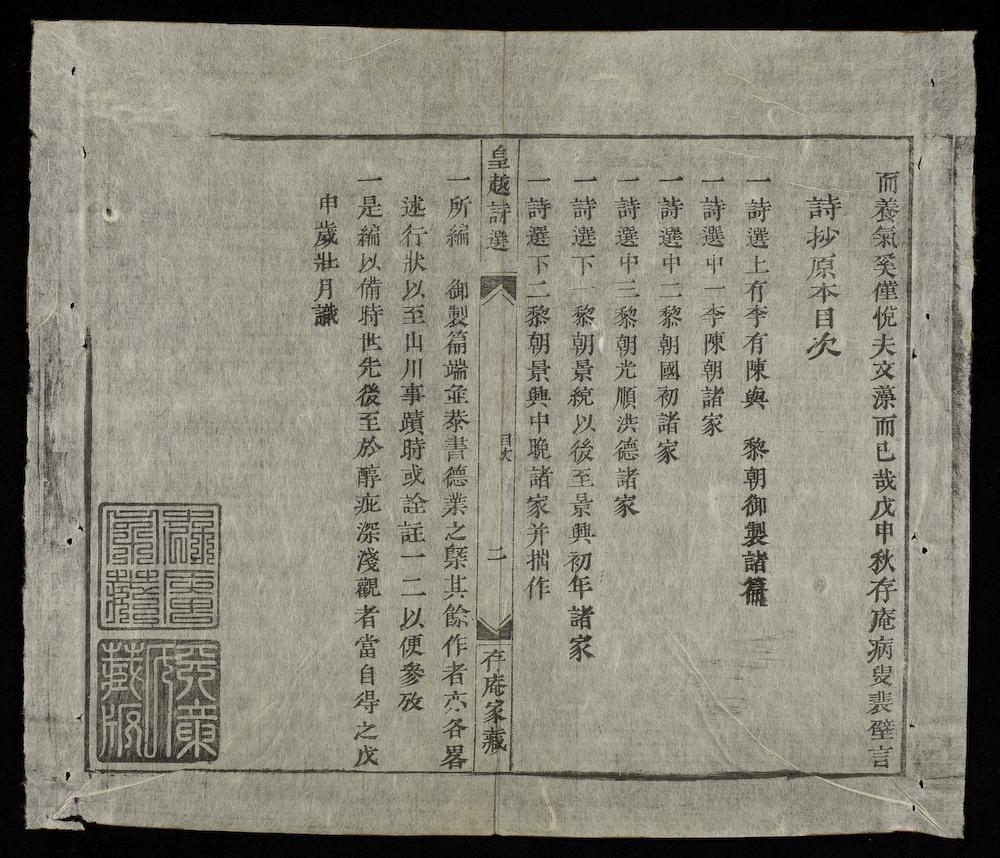 而養氣奚僅悅夫文藻而已哉戊申秋存庵病叟裴璧言
詩抄原本目次
一詩選上有李有陳與 黎朝御製諸篇
一詩選中一李陳朝諸家
一詩選中二黎朝國初諸家
一詩選中三黎朝光順洪德諸家
一詩選下一黎朝景統以後至景興初年諸家
一詩選下二黎朝景興中晚諸家并拙作
皇越詩選 目次 二 存庵家藏
一所編 御製篇端並恭書德業之槩其餘作者亦各畧
述行狀以至山川事蹟時或詮註一二以便參攷
一是編以備時世先後至於醇疵深淺觀者當自得之戊
申歲壯月識
希文堂
藏板